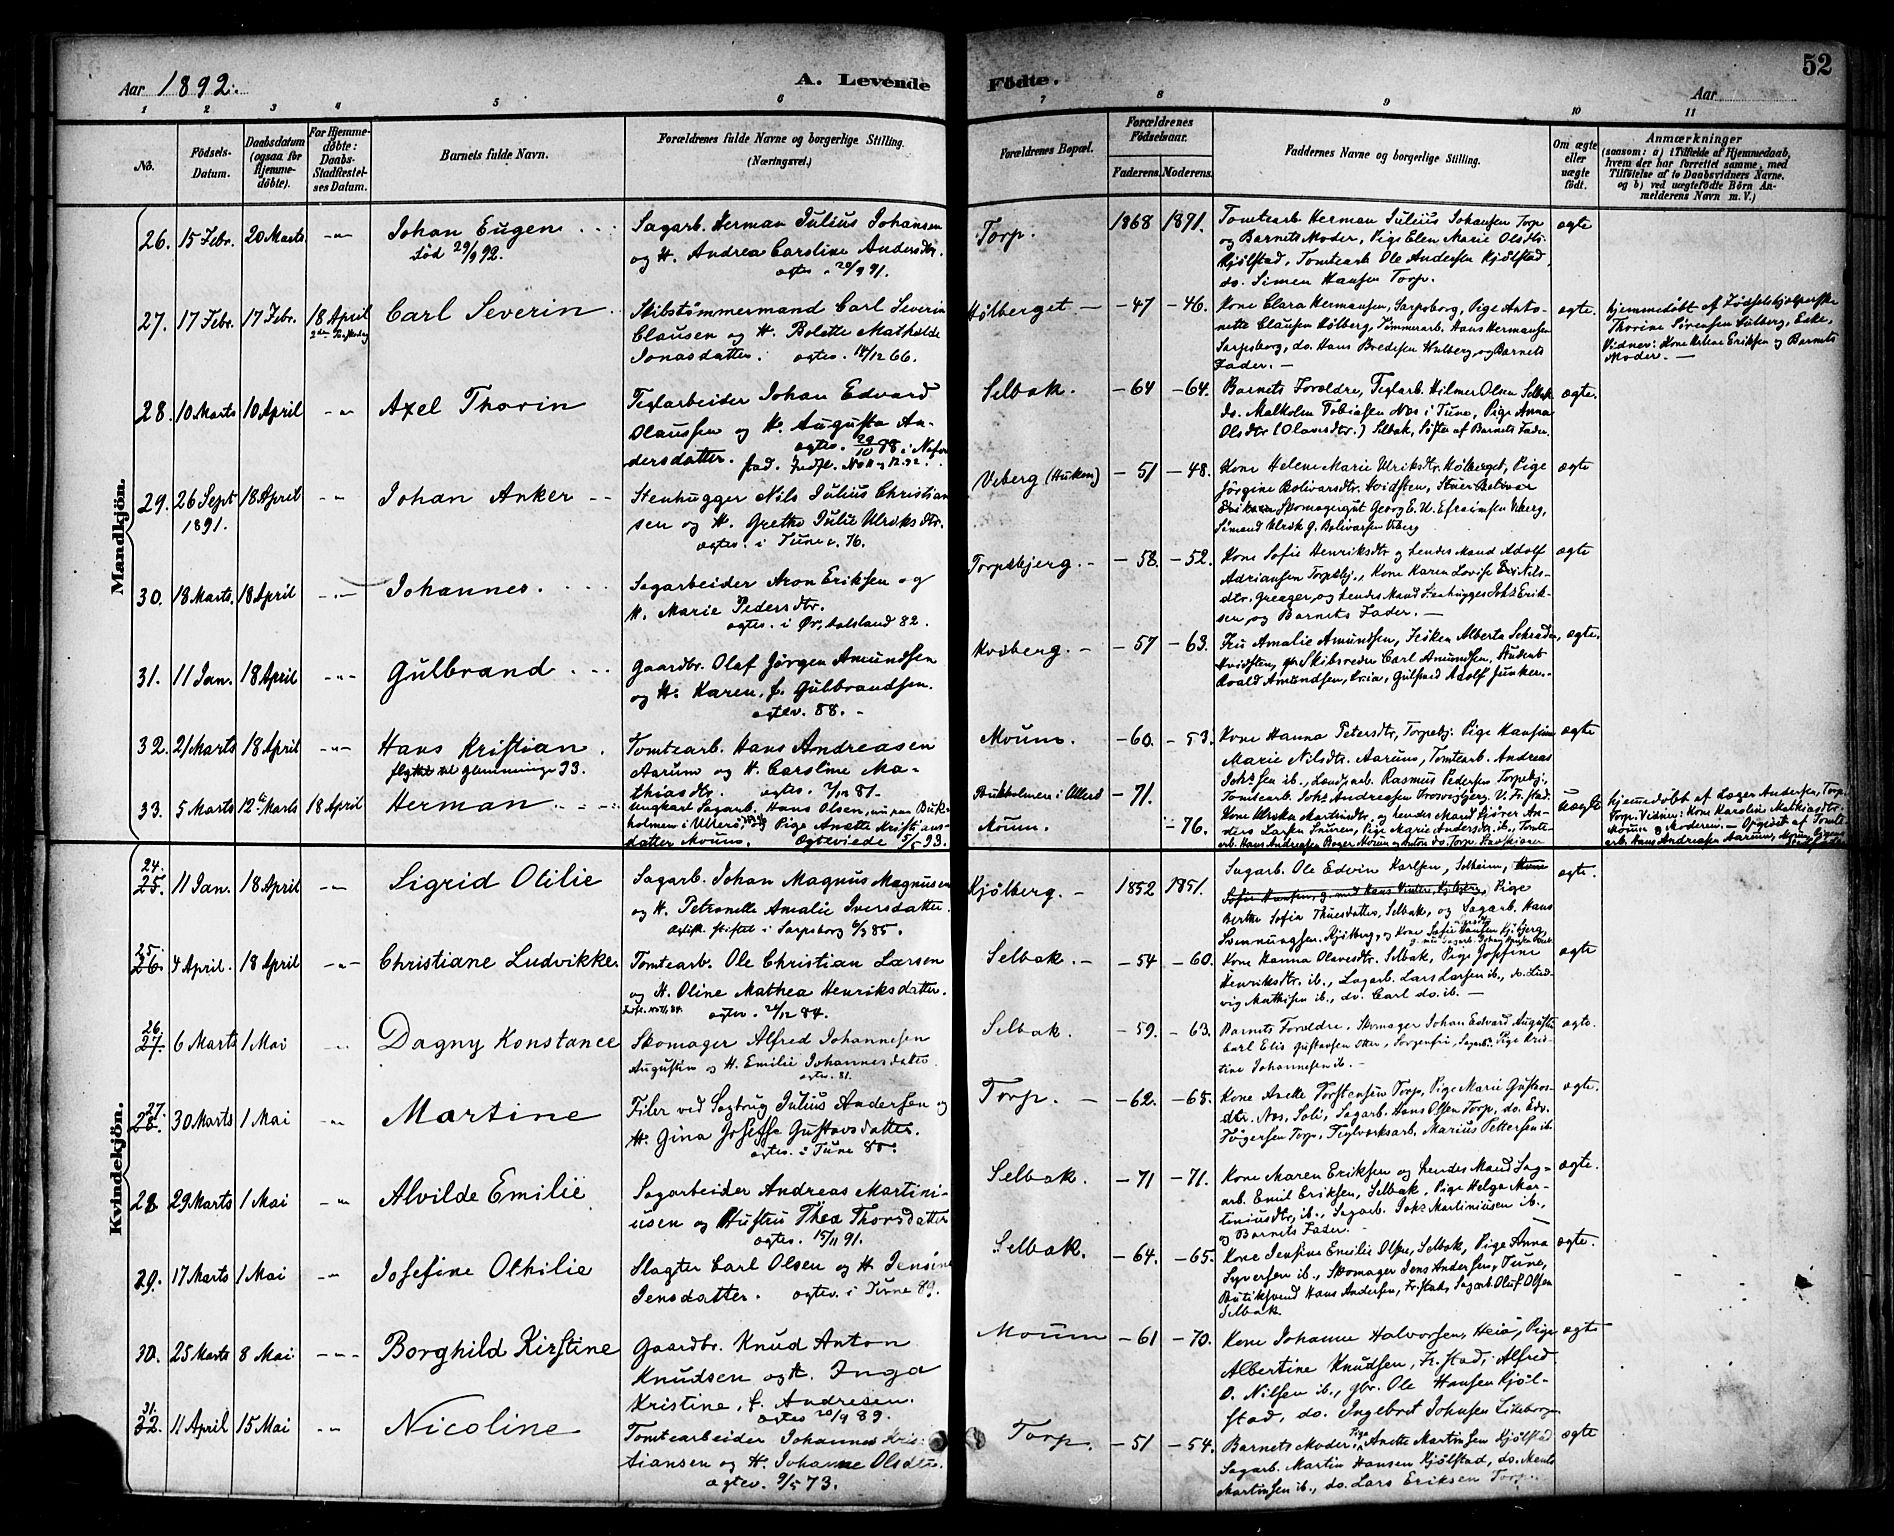 Aar 1892.
A. Levende Fødte.
52
Aar
1 2 3 4 5 6 7 8 9 10 11
No.
Födsels-Datum.
Daabsdatum (ogsaa for Hjemmedöbte).
For Hjemmedöbte: Daabs-Stadfæstelses Datum.
Barnets fulde Navn.
Forældrenes fulde Navne og borgerlige Stilling. (Næringsvei.)
Forældrenes Bopæl.
Forældrenes Födselsaar.
Faderens. Moderens.
Faddernes Navne og borgerlige Stilling.
Om ægte eller uægte födt.
Anmærkninger
(saasom: a) i Tilfælde af Hjemmedaab, hvem der har forrettet samme, med Tilföielse af to Daabsvidners Navne, og b) ved uægtefödte Börn Anmelderens Navn m. V.)
Mandkjön.
26. 15 Febr. 20 Marts -"- Johan Eugen
død 29/9 92.
Sagarb. Herman Julius Johansen
og H. Andrea Caroline Andersdtr.
ægtev. 20/9 91.
Torp. 1868 1871.
Tomtearb Herman Julius Johansen Torp
og Barnets Moder, Pige Elen Marie Olsdtr.
Kjølstad, Tomtearb Ole Andersen Kjølstad,
do. Simen Hansen Torp.
ægte
27. 17 Febr. 17 Febr. 18 April
Carl Severin
Skibstømmermand Carl Severin
Clausen og H. Bolette Mathilde
Jonasdatter. ægtev. 14/12 66.
Hølberget - 47 - 46.
Kone Clara Hermansen, Sarpsborg, Pige Anto-
nette Clausen Hølberg, Tømmerarb. Hans Hermansen
Sarpsborg, do. Hans Bredesen Hulberg, og Barnets
Fader.
ægte.
hjemmedøbt af Fødselshjælperske
Thorine Sørensen
Vidner: Kone Helene Eriksen og Barnets
Moder.
28. 10 Marts 10 April -"- Axel Thorin
Teglarbeider Johan Edvard
Olaussen og H. Augusta An-
dersdatter. ægtev. 29/10 88
Selbak. - 64 - 64.
Barnets Forældre, Teglarb. Hilmer Olsen Selbak
do. Malkolm Tobiasen Næs i Tune, Pige Anna
Olsdtr (Olavsdtr.) Selbak, Søster af Barnets Fader.
ægte.
29. 26 Sept 1891. 18 April -"- Johan Anker
Stenhugger Nils Julius Christian
sen og H. Grethe Julie Ulriksdtr.
ægtev. i Tune c. 76.
Viberg (Huken) - 51 - 48.
Kone Helene Marie Ulriksdtr. Hølberget, Pige
Jørgine Bolivarsdtr. Kvidsten,
Skomagergut Georg E. W. Efraimsen Viberg,
Sømand Ulrik G. Bolivarsen Viberg
ægte
30. 18 Marts. 18 April -"- Johannes.
Sagarbeider Aron Eriksen og
H. Marie Pedersdtr.
ægtev. i Ør, Dalsland 82.
Torpebjerg. - 58. - 52.
Kone Sofie Henriksdtr og hendes Mand Adolf
Adriansen Torpebj., Kone Karen Lovise Nils-
dtr. Greager, og hendes Mand Stenhugger Johs Erik-
sen, og Barnets Fader.
ægte
31. 11 Jan. 18 April -"- Gulbrand
Gaardbr. Olaf Jørgen Amundsen
og H. Karen, f. Gulbrandsen.
ægtev. 88.
Hvidsten. - 57 - 63.
Fru Amalie Amundsen, Frøken Alberta Schrøder,
Hvidsten, gbr Skibsreder Carl Amundsen, Student
Roald Amundsen, Kria, Gulsmed Adolf Junker.
ægte.
32. 21 Marts 18 April -"- Hans Kristian.
flyttet til Glemminge 93.
Tomtearb. Hans Andreasen
Aarum og H. Caroline Ma-
thiasdtr. ægtev. 81.
Moum. - 60. - 53.
Kone Hanna Petersdtr, Torpebj. Pige Hansine
Marie Nilsdtr. Aarum, Tomtearb. Andreas
Johsen ib., Landarb. Rasmus Pedersen Torpebj.
ægte
33. 5 Marts 12te Marts 18 April Herman.
Ungkarl Sagarb. Hans Olsen, nu paa Buk-
holmen i Ullerø, og Pige Anette Kristians-
datter Moum. Ægteviede 5/5 93.
Bukholmen i Ullerø - 71.
Moum. - 76.
Tomtearb. Johs Andreassen
Kone Ulrika Martinsdtr, og hendes Mand Kjører An-
ders Larsen
uægte
hjemmedøbt af Lægen Andersen, Torp,
Torp. Vidner: Kone Karoline Mathiasdtr.
Moum og Moderen. Opgivet af Tomte-
arb. Hans Andreasen Aarum, Moum
Kvindekjön.
24. 25. 11 Jan. 18 April -"- Sigrid Otilie
Sagarb. Johan Magnus Magnussen
og H. Petronelle Amalie Iversdatter.
stiftet i Sarpsborg 85.
Kjølberg. - 1852 1851.
Sagarb. Ole Edvin Karlsen, Solheim,
Pige
Berthe Sofia Thuesdatter, Selbak, og Sagarb. Hans
Svennungsen, Kjølberg, og Kone Sofie Hansen Kjølberg
ægte.
25. 26. 4 April. 18 April -"- Christiane Ludvikke
Tomtearb. Ole Christian Larsen
og H. Oline Mathea Henriksdatter.
ægtev. 26/12 84.
Selbak. - 54 - 60.
Kone Hanna Olavesdtr. Selbak, Pige Josefine
Henriksdtr. ib., Sagarb. Lars Larsen ib., do. Lud-
vig Mathisen ib., do. Carl do. ib.
ægte
26. 27. 6 Marts 1 Mai -"- Dagny Konstance
Skomager Alfred Johannesen
Augustin og H. Emilie Johannesdatter
ægtev. 81.
Selbak. - 59. - 63.
Barnets Forældre, Skomager Johan Edvard Augustin
Carl Elis Gustavsen Otter, Sorgenfri, Sagarb. Pige Kris-
tine Johannesen ib.
ægte.
27. 28. 30 Marts 1 Mai -"- Martine
Filer ved Sagbrug Julius Andersen og
H. Gina Josefse Gustavsdatter.
ægtev. i Tune 85.
Torp. - 62. - 65.
Kone Anette Torstensen Torp, Pige Marie Gustavs-
dtr. Næs, Soli, Sagarb. Hans Olsen Torp, do. Edv.
Jøgersen Torp, Teglværksarb. Marius Pettersen ib.
ægte.
28. 29 Marts 1 Mai -"- Alvilde Emilie
Sagarbeider Andreas Martini-
usen og Hustru Thea Thorsdatter
ægtev. 15/11 91.
Selbak. - 71 - 71.
Kone Maren Eriksen og hendes Mand Sag-
arb. Emil Eriksen, Selbak, Pige Helga Mar-
tiniusdtr. ib., Sagarb. Johs Martiniusen ib.,
og Barnets Fader.
ægte.
29. 17 Marts 1 Mai -"- Josefine Othilie
Slagter Carl Olsen og H. Jensine
Jensdatter. ægtev. i Tune 89.
Selbak. - 64. - 65.
Kone Josefine Emilie Olsen, Selbak, Pige Anna
Syversen ib., Skomager Jens Andersen, Tune,
Butiksvend Hans Andersen, Fr.stad, Sagarb Oluf Olsen
Selbak.
ægte.
30. 25 Marts 8 Mai -"- Borghild Kirstine
Gaardbr. Knud Anton
Knudsen og H. Inga
Kristine, f. Andresen.
ægtev 20/9 89.
Moum - 61 - 70.
Kone Johanne Halvorsen, Heiø, Pige
Albertine Knudsen, Fr.stad, Alfred
O. Nilsen ib., gbr. Ole Hansen Kjøl-
stad, do. Ingebret Johnsen Likeborg
ægte
31. 32. 11 April 15 Mai -"- Nicoline
Tomtearbeider Johannes Kris-
tiansen og H. Johanne Olsdtr.
ægtev. 9/5 73.
Torp. - 51 - 54.
Barnets Moder, Pige Anette Martinsen Kjølstad
Sagarb. Martin Hansen Kjølstad, do. Ments
Martinsen ib., do. Lars Eriksen Torp.
ægte